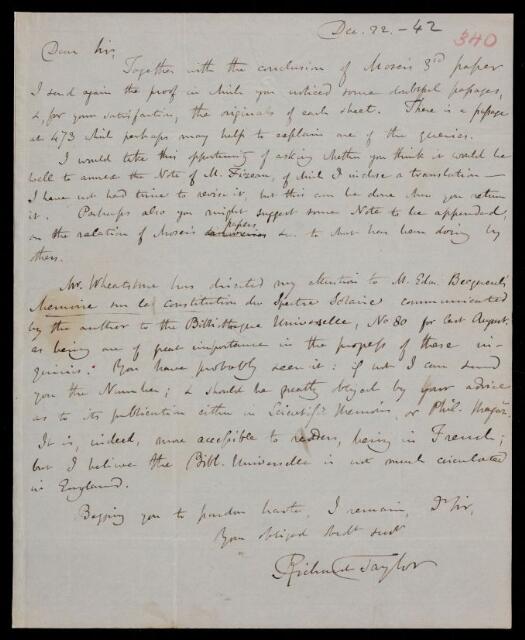 Dec. 22. – 42
340
Dear Sir,
Together with the conclusion of Moser's 3rd paper
I send again the proof in which you noticed some doubtful passages,
&, for your satisfaction, the originals of each sheet. There is a passage
at 473 which perhaps may help to explain one of the queries.
I would take this opportunity of asking whether you think it would be
well to annex the Note of M. Fizeau, of which I inclose a translation —
I have not had time to revise it, but this can be done when you return
it. Perhaps also you might suggest some Note to be appended,
on the relation of Moser's papers &c. to what has been doing by
others.
Mr. Wheatstone has directed my attention to M. Edm. Becquerel's
Memoire sur la Constitution du Spectre Solaire communicated
by the author to the Bibliotheque Universelle, No 80 for last August,
as being one of great importance in the progress of these in-
quiries. You have probably seen it: if not I can send
you the Number; & should be greatly obliged by your advice
as to its publication either in Scientific Memoirs, or Phil. Magaz.
It is, indeed, more accessible to readers, being in French;
but I believe the Bibl. Universelle is not much circulated
in England.
Begging you to pardon haste, I remain, Dr Sir,
Your obliged & obedt Servt
Richard Taylor